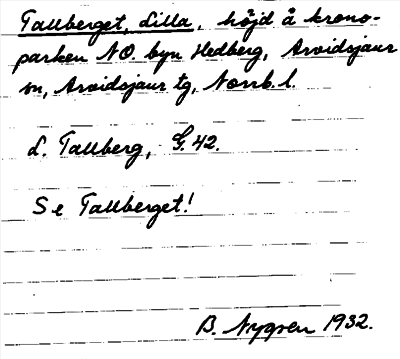 Tallberget, Lilla, höjd å krono-
parken NO. byn Hedberg, Arvidsjaur
sn, Arvidsjaur tg, Norrb. l.
L. Tallberg, G. 42.
Se Tallberget!
B. Nygren 1932.